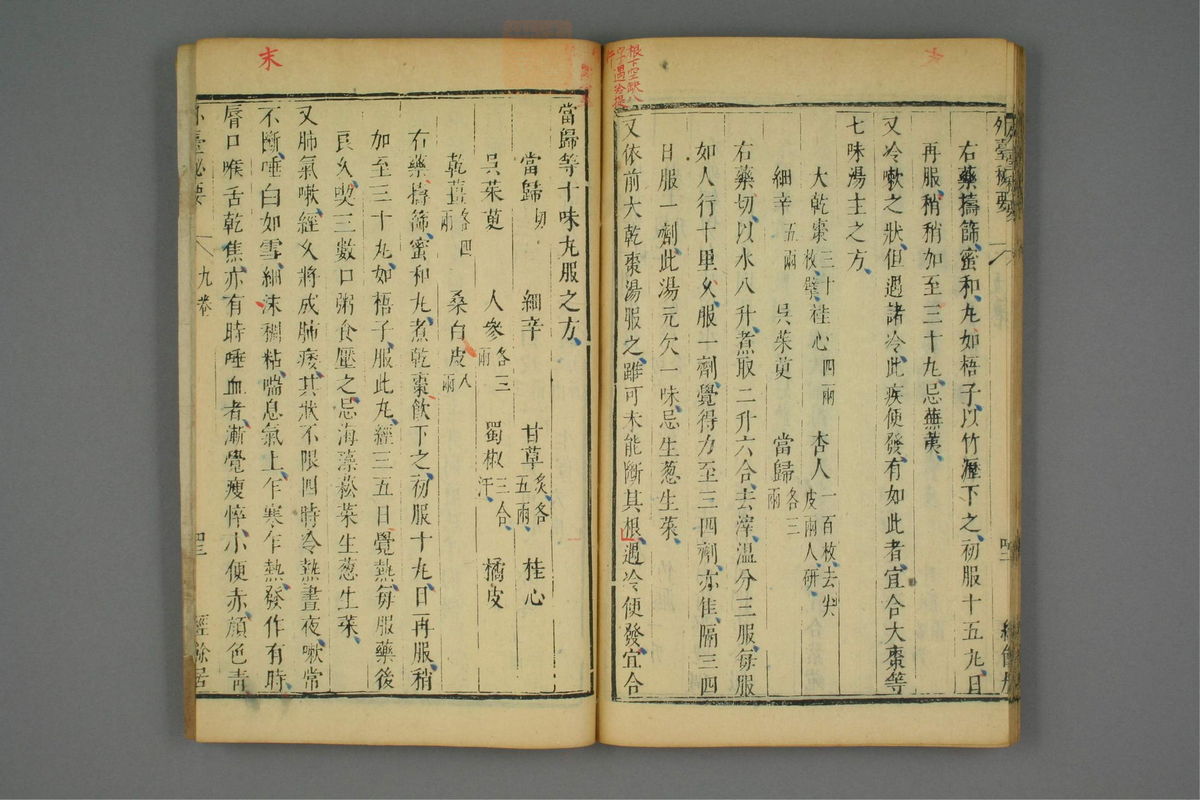 外臺秘要
右藥擣篩蜜和丸如梧子以竹瀝下之初服十五丸日
再服稍稍加至三十丸忌蕪荑
又冷嗽之狀但遇諸冷此疾便發有如此者宜合大棗等
七味湯主之方
大乾棗三十枚擘 桂心四兩 杏人一百枚去尖皮兩人研
細辛五兩 吳茱萸 當歸各三兩
右藥切以水八升煮取二升六合去滓溫分三服每服
如人行十里久服一劑覺得力至三四劑亦佳隔三四
日服一劑此湯元欠一味忌生葱生菜
又依前大乾棗湯服之雖可未能斷其根遇冷便發宜合
根下空缺八
當歸等十味丸服之方
當歸切 細辛 甘草炙各五兩 桂心
吳茱萸 人參各三兩 蜀椒三合汗 橘皮
乾薑各四兩 桑白皮八兩
右藥擣篩蜜和丸煮乾棗飲下之初服十丸日再服稍
加至三十丸如梧子服此丸經三五日覺熱每服藥後
良久喫三數口粥食壓之忌海藻菘菜生葱生菜
又肺氣嗽經久將成肺痿其狀不限四時冷熱晝夜嗽常
不斷唾白如雪細沫稠粘喘息氣上乍寒乍熱發作有時
脣口喉舌乾焦亦有時唾血者漸覺瘦悴小便赤顏色青
外臺秘要 九卷 經餘居
末